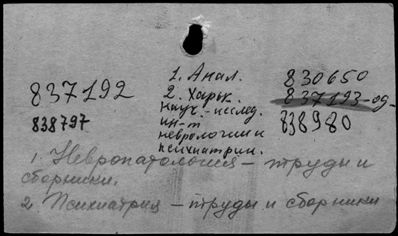 837192
838797
1. Анал.
2. Харьк.
науч.-исслед.
ин-т
неврологии и
психиатрии.
830650
837193-од.
838980
1. Невропатология – труды и
сборники.
2. Психиатрия – труды и сборники